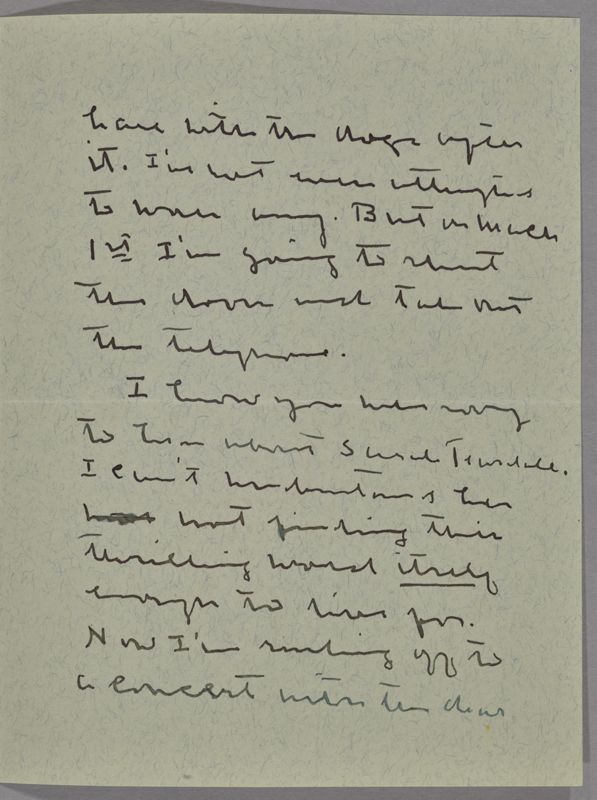 have with the dogs after
it. I've not even attempted
to work any. But on March
1st I'm going to shut
the door and take out
the telephone.
I know you were sorry
to hear about Sara Teasdale.
I can't understand her
not finding this
thrilling world itself
enough to live for.
Now I'm rushing off to
a concert with the dear